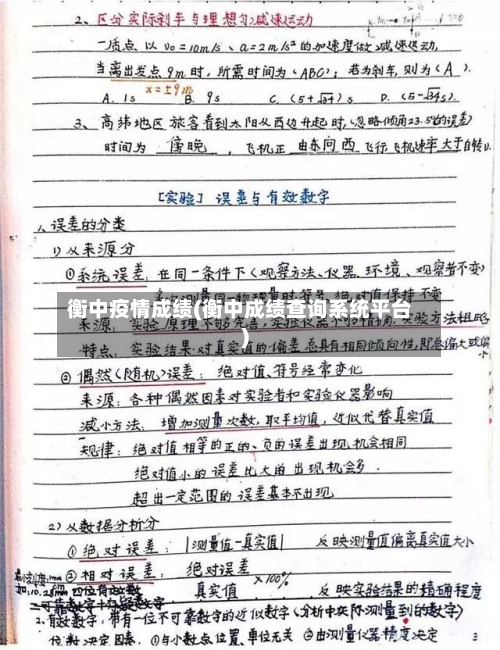 2、区分实际刹车与理想匀减速运动
一质点以v₀=10m/s、a=2m/s²的加速度做匀减速运动,
当离出发点9m时,所需时间为(ABC);若为刹车,则为(A).
x=±9m
A. 1s B. 9s C. (5+√34)s D. (5-√34)s.
3、高纬地区旅客看到太阳从西边升起时,(忽略倾角23.5°的误差)
时间为 傍晚 ,飞机正 由东向西 飞行飞机速率大于自转v.
[实验] 误差与有效数字
1、误差的分类
1) 从来源分
①系统误差:在同一条件下(观察方法、仪器、环境、观察者不变)
衡中疫情成绩(衡中成绩查询系统平台
)
特点:实验结果对真实值的偏差总具有相同倾向性,即总偏大或偏小
②偶然(随机)误差:绝对值、符号经常变化
来源:各种偶然因素对实验者和实验仪器影响
减小方法:增加测量次数,取平均值,近似代替真实值
规律:绝对值相等的正的、负的误差出现机会相同
绝对值小的误差比大的出现机会多.
超出一定范围的误差基本不出现
2) 从数据分析分
①绝对误差:|测量值-真实值| 反映测量值偏离真实值大小
②相对误差:绝对误差
真实值 ×100% 反映实验结果的精确程度
2、有效数字:带有一位不可靠数字的近似数字(分析中实际测量到的数字)
位数决定因素:①与小数点位置、单位无关 ②由测量仪器精度决定
3